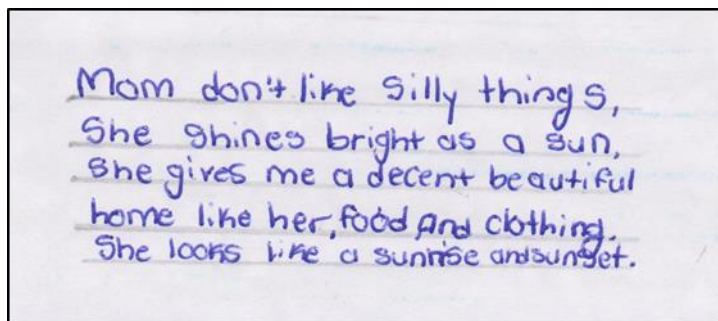 Mom don't like silly things,
She shines bright as a sun,
she gives me a decent beautiful
home like her, food And clothing.
She looks like a sunrise and sunset.